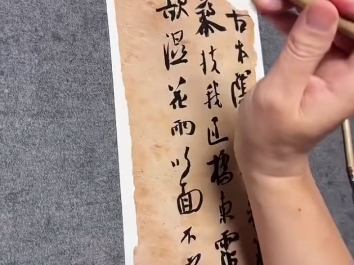 古木蔭
藜扶我過橋東霑
欲湿花雨吹面不